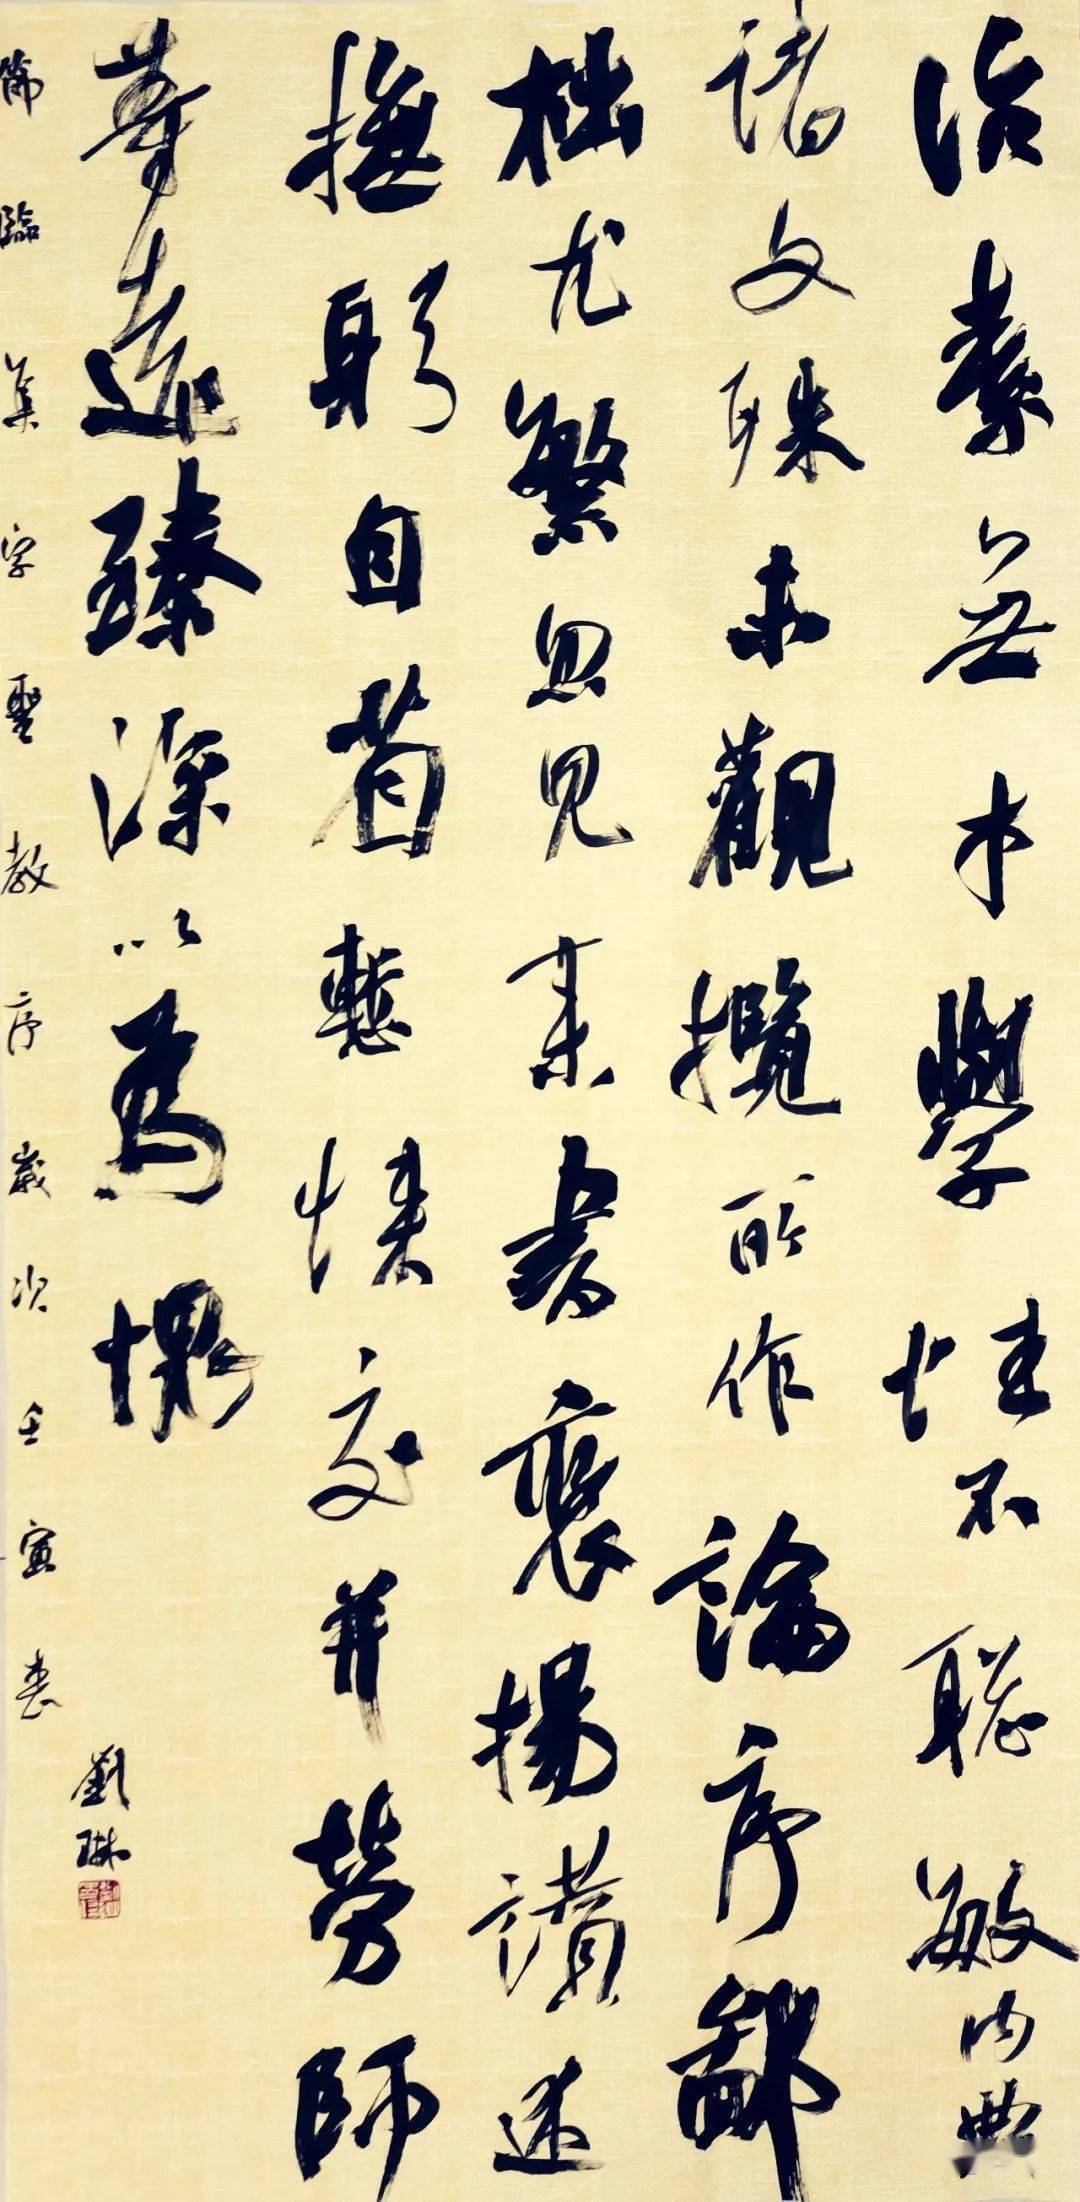 治素無才學性不聰敏內典
諸文殊未觀攬所作論序鄙
拙尤繁忽見來書褒揚讚述
撫躬自省慙悚交并勞師
等遠臻深以為愧
臨集字聖教序歲次壬寅春
劉琳